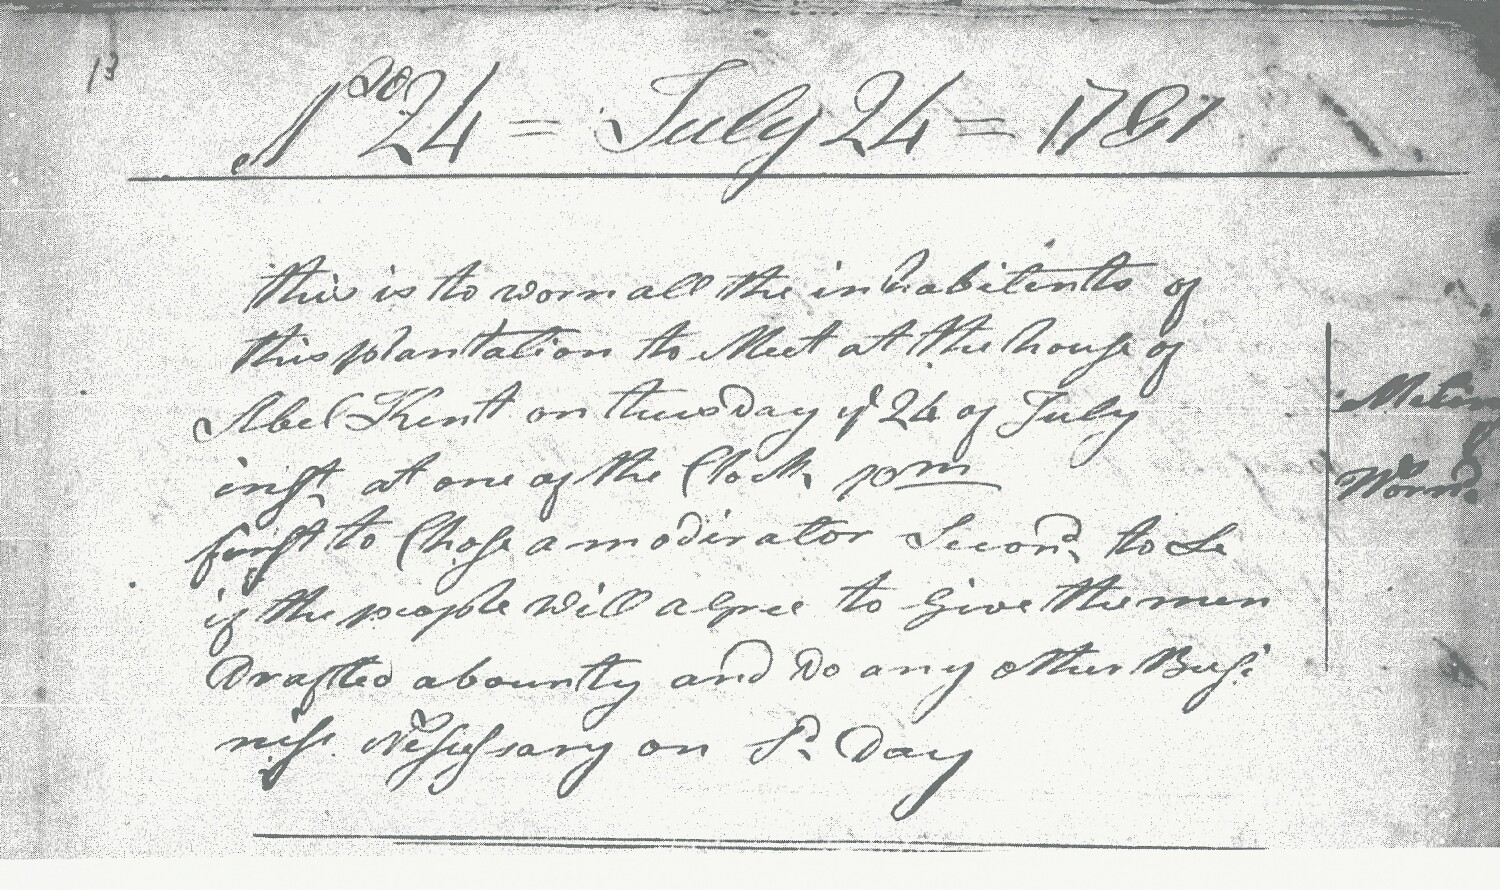 13
No 24 = July 24 = 1781
this is to worn all the inhabitents of
this plantation to Meet at the house of
Abel Kent on tuesday ye 24 of July
inst at one of the Clock pm
first to Chose a moderator Second to Se
if the people will agree to give the men
Drafted abounty and Do any other Busi
niss Nesissary on sd Day
Meten
Wornd